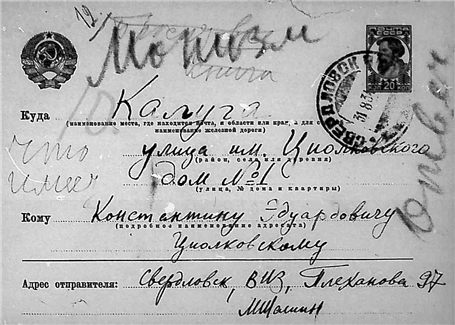 12/
Монизм
книга
СВЕРДЛОВСК
20
Куда Калуга
(наименование места, где находится почта, и области или края, а для станций
наименование железной дороги)
что улица им. Циолковского
(район, село или деревня)
имеет дом № 1
(улица, № дома и квартиры)
Кому Константину Эдуардовичу
(подробное наименование адресата)
Циолковскому
Адрес отправителя: Свердловск, ВИЗ, Плеханова 97
ответ